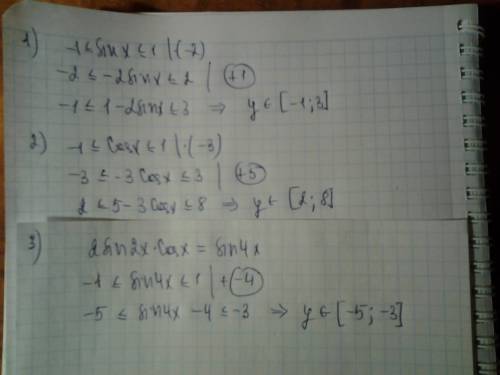 1) -1 ≤ sin x ≤ 1 | (-2)
-2 ≤ -2sin x ≤ 2 | +1
-1 ≤ 1 - 2sin x ≤ 3 ⇒ y ∈ [-1; 3]
2) -1 ≤ cos x ≤ 1 | ·(-3)
-3 ≤ -3cos x ≤ 3 | +5
2 ≤ 5 - 3cos x ≤ 8 ⇒ y ∈ [2; 8]
3) 2sin2x·cos x = sin4x
-1 ≤ sin4x ≤ 1 | +(-4)
-5 ≤ sin4x - 4 ≤ -3 ⇒ y ∈ [-5; -3]